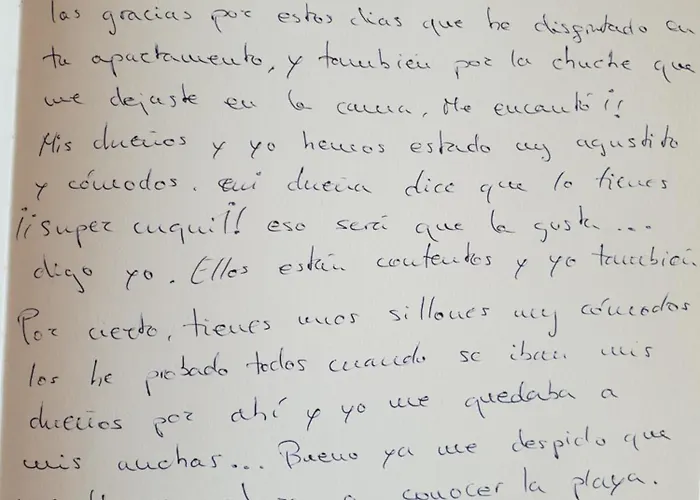 las gracias por estos días que he disfrutado en
tu apartamento, y también por la chuche que
me dejaste en la cama. Me encantó¡¡
Mis dueños y yo hemos estado muy agustito
y cómodos. mi dueña dice que lo tienes
¡¡super cuqui¡¡! eso será que la gusta...
digo yo. Ellos están contentos y yo también.
Por cierto, tienes unos sillones muy cómodos
los he probado todos cuando se iban mis
dueños por ahí y yo me quedaba a
mis anchas... Bueno ya me despido que
a conocer la playa.